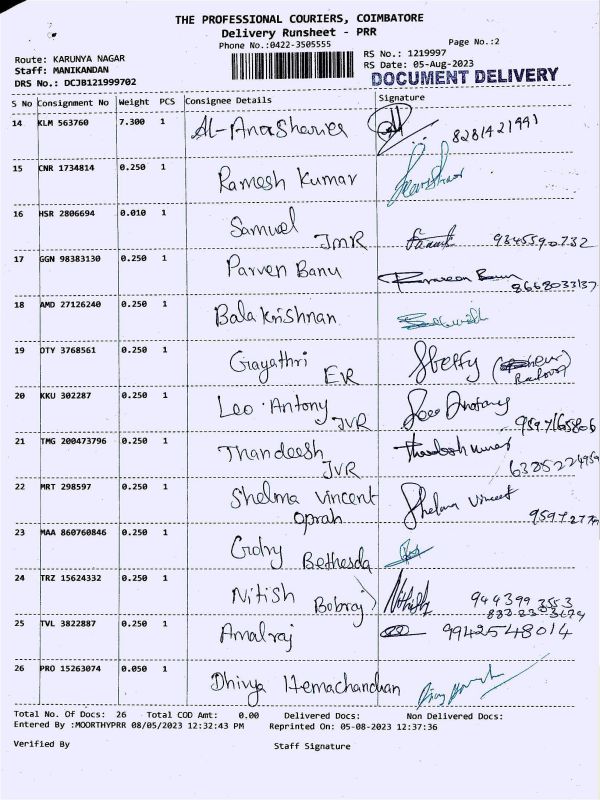 THE PROFESSIONAL COURIERS, COIMBATORE
Delivery Runsheet - PRR
Phone No.:0422-3505555
Page No.:2
Route: KARUNYA NAGAR
RS No.: 1219997
Staff: MANIKANDAN
RS Date: 05-Aug-2023
DRS No.: DCJB121999702
DOCUMENT DELIVERY
S No Consignment No Weight PCS Consignee Details Signature
14 KLM 563760 7.300 1 8281421991
15 CNR 1734814 0.250 1 Ramesh Kumar
16 HSR 2806694 0.010 1 Samuel JMR 9345590732
17 GGN 98383130 0.250 1 Parven Banu 8668033137
18 AMD 27126240 0.250 1 Balakrishnan
19 OTY 3768561 0.250 1 Gayathri EVR
20 KKU 302287 0.250 1 Leo. Antony JVR Leo Antony
21 TMG 200473796 0.250 1 Thandeesh JVR
22 MRT 298597 0.250 1 Shelma Vincent Oprah Shelma Vincent
23 MAA 860760846 0.250 1 Bethesda
24 TRZ 15624332 0.250 1 Nitish Bobraj
25 TVL 3822887 0.250 1 Amalraj 9942548014
26 PRO 15263074 0.050 1 Dhivya Hemachandran
Total No. Of Docs: 26 Total COD Amt: 0.00 Delivered Docs: Non Delivered Docs:
Entered By :MOORTHYPRR 08/05/2023 12:32:43 PM Reprinted On: 05-08-2023 12:37:36
Verified By Staff Signature